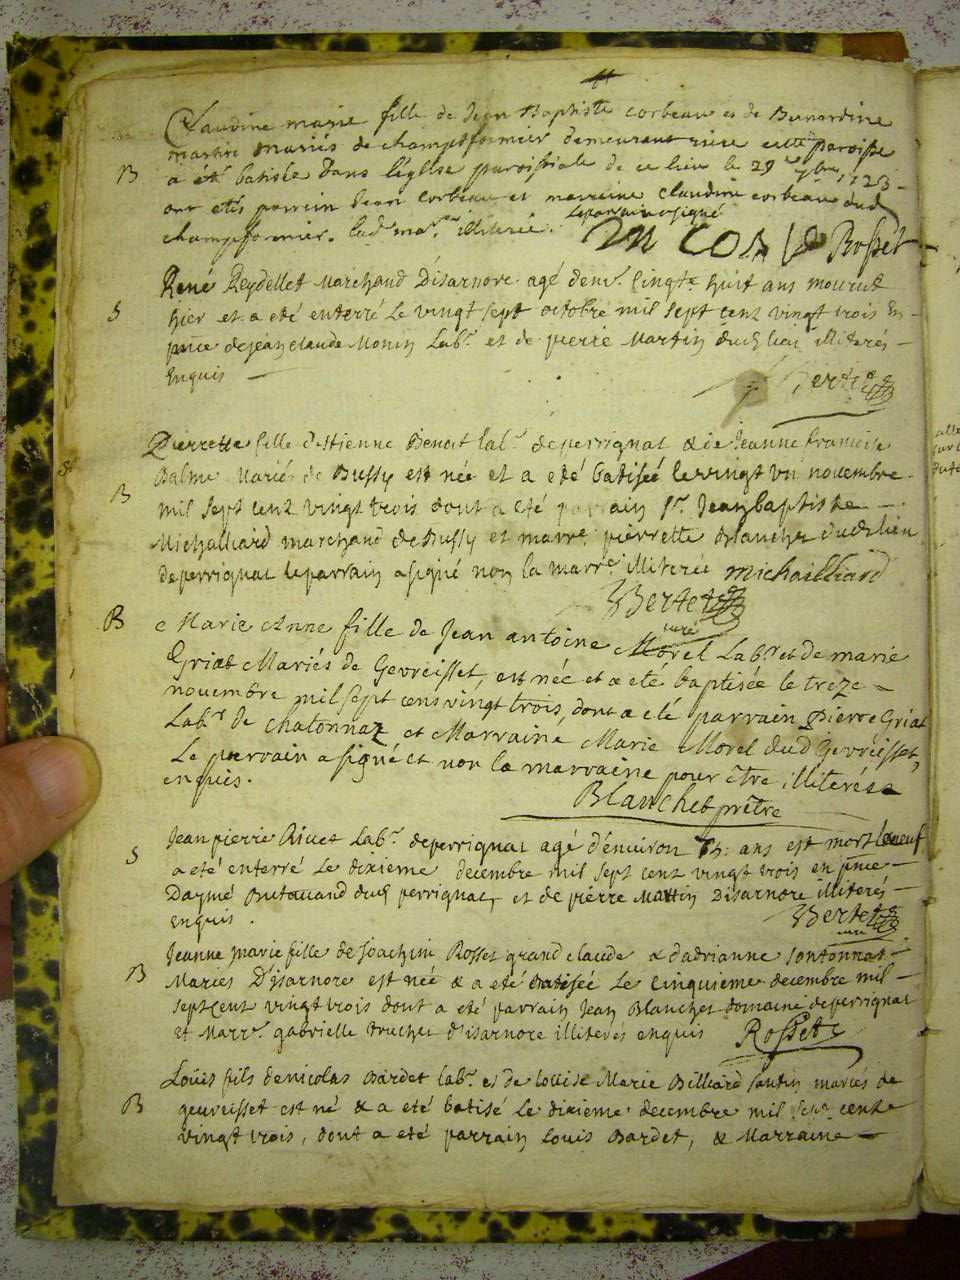 Claudine marie fille de Jean Baptiste corbeau et de Bernardine
martin mariés de champformier demeurant riere cette paroisse
B a été batisée dans l'église paroissiale de ce lieu le 29e 7bre 1723
ont etés parrein Jean corbeau et marreine claudine corbeau dud
Leparrain a signé
champformier. lad. mar.ne illiterée. Rosset
René Reydellet Marchand Disarnore agé denv. Cinqte huit ans mourut
S hier et a eté enterré Le vingt sept octobre mil sept cent vingt trois En
pnce dejean claude Monin Lab.r et de pierre Martin dud lieu illiterés
Enquis Bertet
Pierrette fille d'Etienne Benoit lab.r deperrignat & de Jeanne francoise
Balme Mariés de Bussy est née et a eté batisée le vingt un novembre
B mil sept cent vingt trois dont a eté parrain s.r Jean baptiste
Michailliard marchand de Bussy et marr.e pierrette Blanchet dudt lieu
deperrignat leparrain a signé non la marr.e illiterée michailliard
Bertet
curé
B Marie Anne fille de Jean antoine Morel Lab.r et de marie
Griat Mariés de Gevreisset, est née et a eté baptisée le treze
novembre mil sept cens vingt trois, dont a eté parrain pierre Griat
Lab.r de chatonnaz et Marraine Marie Morel dud Gevreisset,
Le parrain a signé et non la marraine pour être illiterée
enquis. Blanchet prêtre
Jean pierre Rivet Lab.r deperrignat agé d'environ ans est mort leneuf
S a eté enterré Le dixieme decembre mil sept cent vingt trois en pnce
Daymé dud perrignat, et de pierre Martin Disarnore illiterés
enquis. Bertet
curé
Jeanne marie fille de Joachim Rosset grand claude & d'adrianne sontonnat
B Mariés D'isarnore est née & a eté batisée Le cinquieme decembre mil
sept cent vingt trois dont a eté parrain Jean Blanchet domaine deperrignat
et Marr.e gabrielle druchet d'isarnore illiterés enquis Rosset
Loüis fils denicolas Bardet lab.r et de louise Marie Billiard santin mariés de
B geuvreisset est né & a eté batisé Le dixieme decembre mil sept cent
vingt trois, dont a eté parrain Louis Bardet, & Marraine